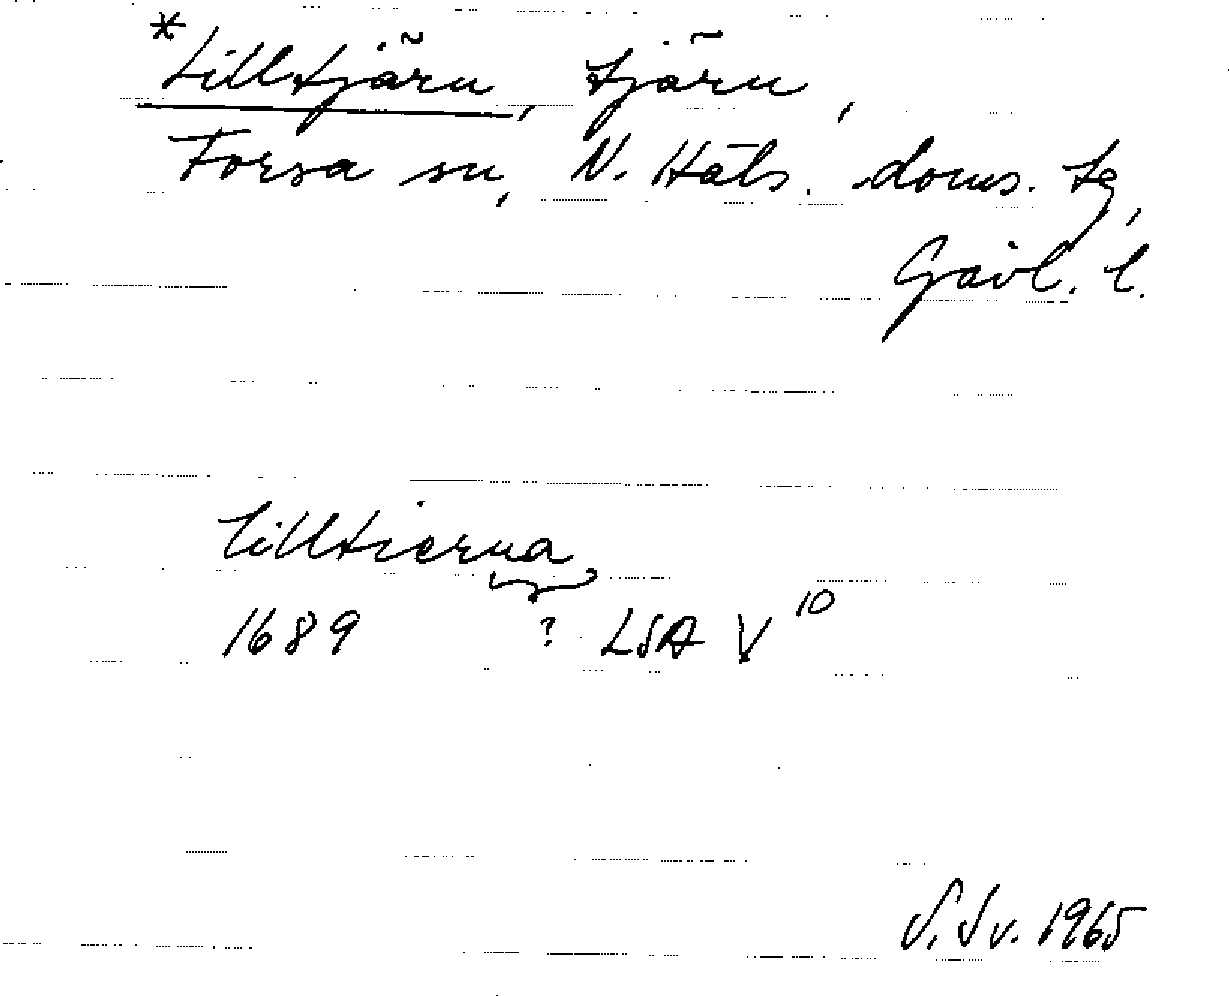 *Lilltjärn, tjärn,
Forsa sn, N. Häls. doms. tg,
Gävl. l.
Lilltierna
1689 ? LSA V 10
S. Sv. 1965